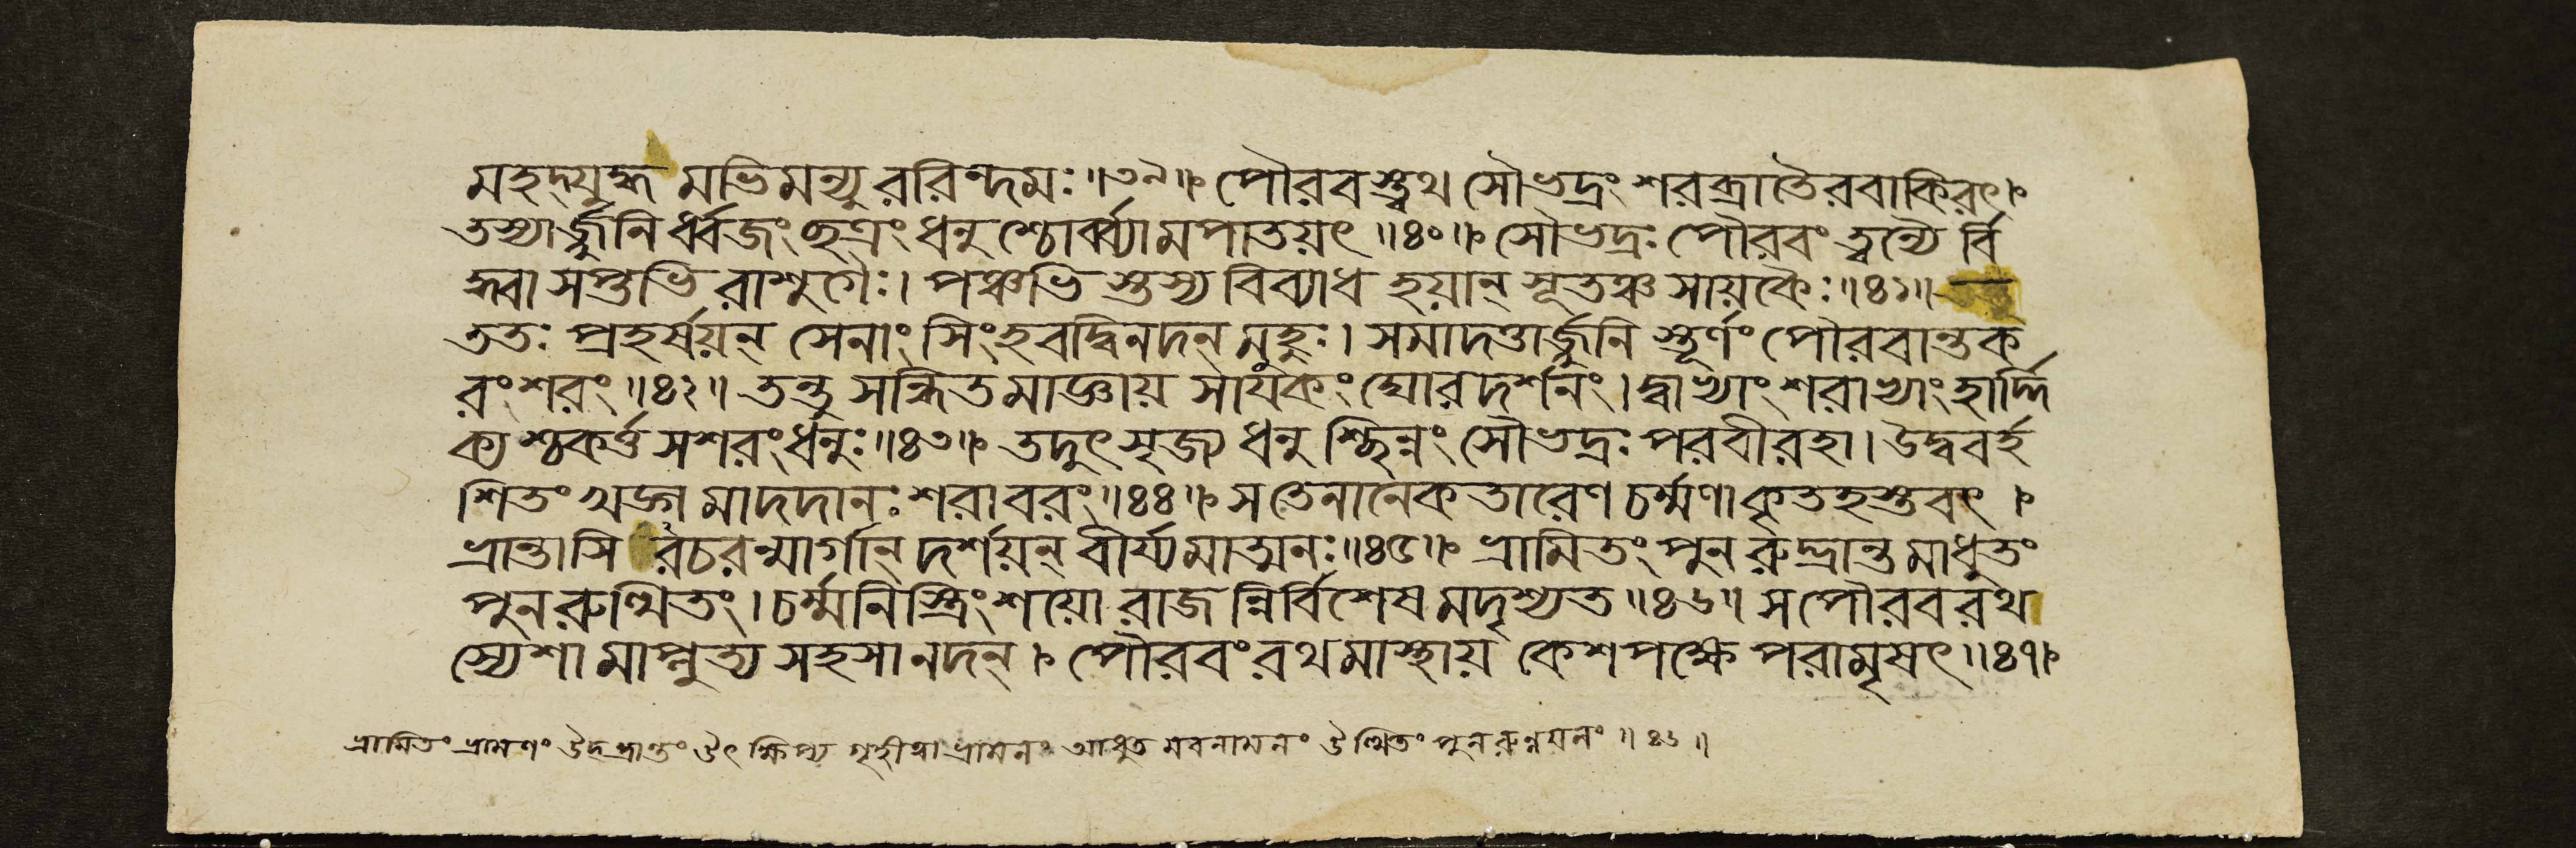 মহদ্যুদ্ধমভিমন্যুররিন্দমঃ॥৩৯॥ পৌরবস্ত্বথ সৌভদ্রং শরব্রাতৈরবাকিরৎ।
তস্যার্জ্জুনির্ধ্বজং ছত্রং ধনুশ্চোর্ব্ব্যামপাতয়ৎ॥৪০॥ সৌভদ্রঃ পৌরবং ত্বন্যৈর্বি
দ্ধ্বা সপ্তভিরাশুগৈঃ। পঞ্চভিস্তস্য বিব্যাধ হয়ান্ সূতঞ্চ সায়কৈঃ॥৪১॥
ততঃ প্রহর্ষয়ন্ সেনাং সিংহবদ্বিনদন্ মুহুঃ। সমাদত্তার্জ্জুনিস্তূর্ণং পৌরবান্তক
রং শরং॥৪২॥ তন্তু সন্ধিতমাজ্ঞায় সায়কং ঘোরদর্শনং। দ্বাভ্যাং শরাভ্যাং হার্দ্দি
ক্যশ্চকর্ত্ত সশরং ধনুঃ॥৪৩॥ তদুৎসৃজ্য ধনুশ্ছিন্নং সৌভদ্রঃ পরবীরহা। উদ্ববর্হ
শিতং খড়্গমাদদানঃ শরাবরং॥৪৪॥ স তেনানেকতারেণ চর্ম্মণা কৃতহস্তবৎ।
ভ্রান্তাসিরচরন্মার্গান্ দর্শয়ন্ বীর্য্যমাত্মনঃ॥৪৫॥ ভ্রামিতং পুনরুদ্ভ্রান্তমাধুতং
পুনরুত্থিতং। চর্ম্মনিস্ত্রিংশয়ো রাজন্নির্বিশেষমদৃশ্যত॥৪৬॥ স পৌরবরথ
স্যেশামাপ্লুত্য সহসা নদন্। পৌরবং রথমাস্থায় কেশপক্ষে পরামৃষৎ॥৪৭।
ভ্রামিতং ভ্রামণং উদ্ভ্রান্তং উৎক্ষিপ্য গৃহীত্বা ভ্রামনং আধুতমবনামনং উত্থিতং পুনরুন্নয়নং॥৪৬॥